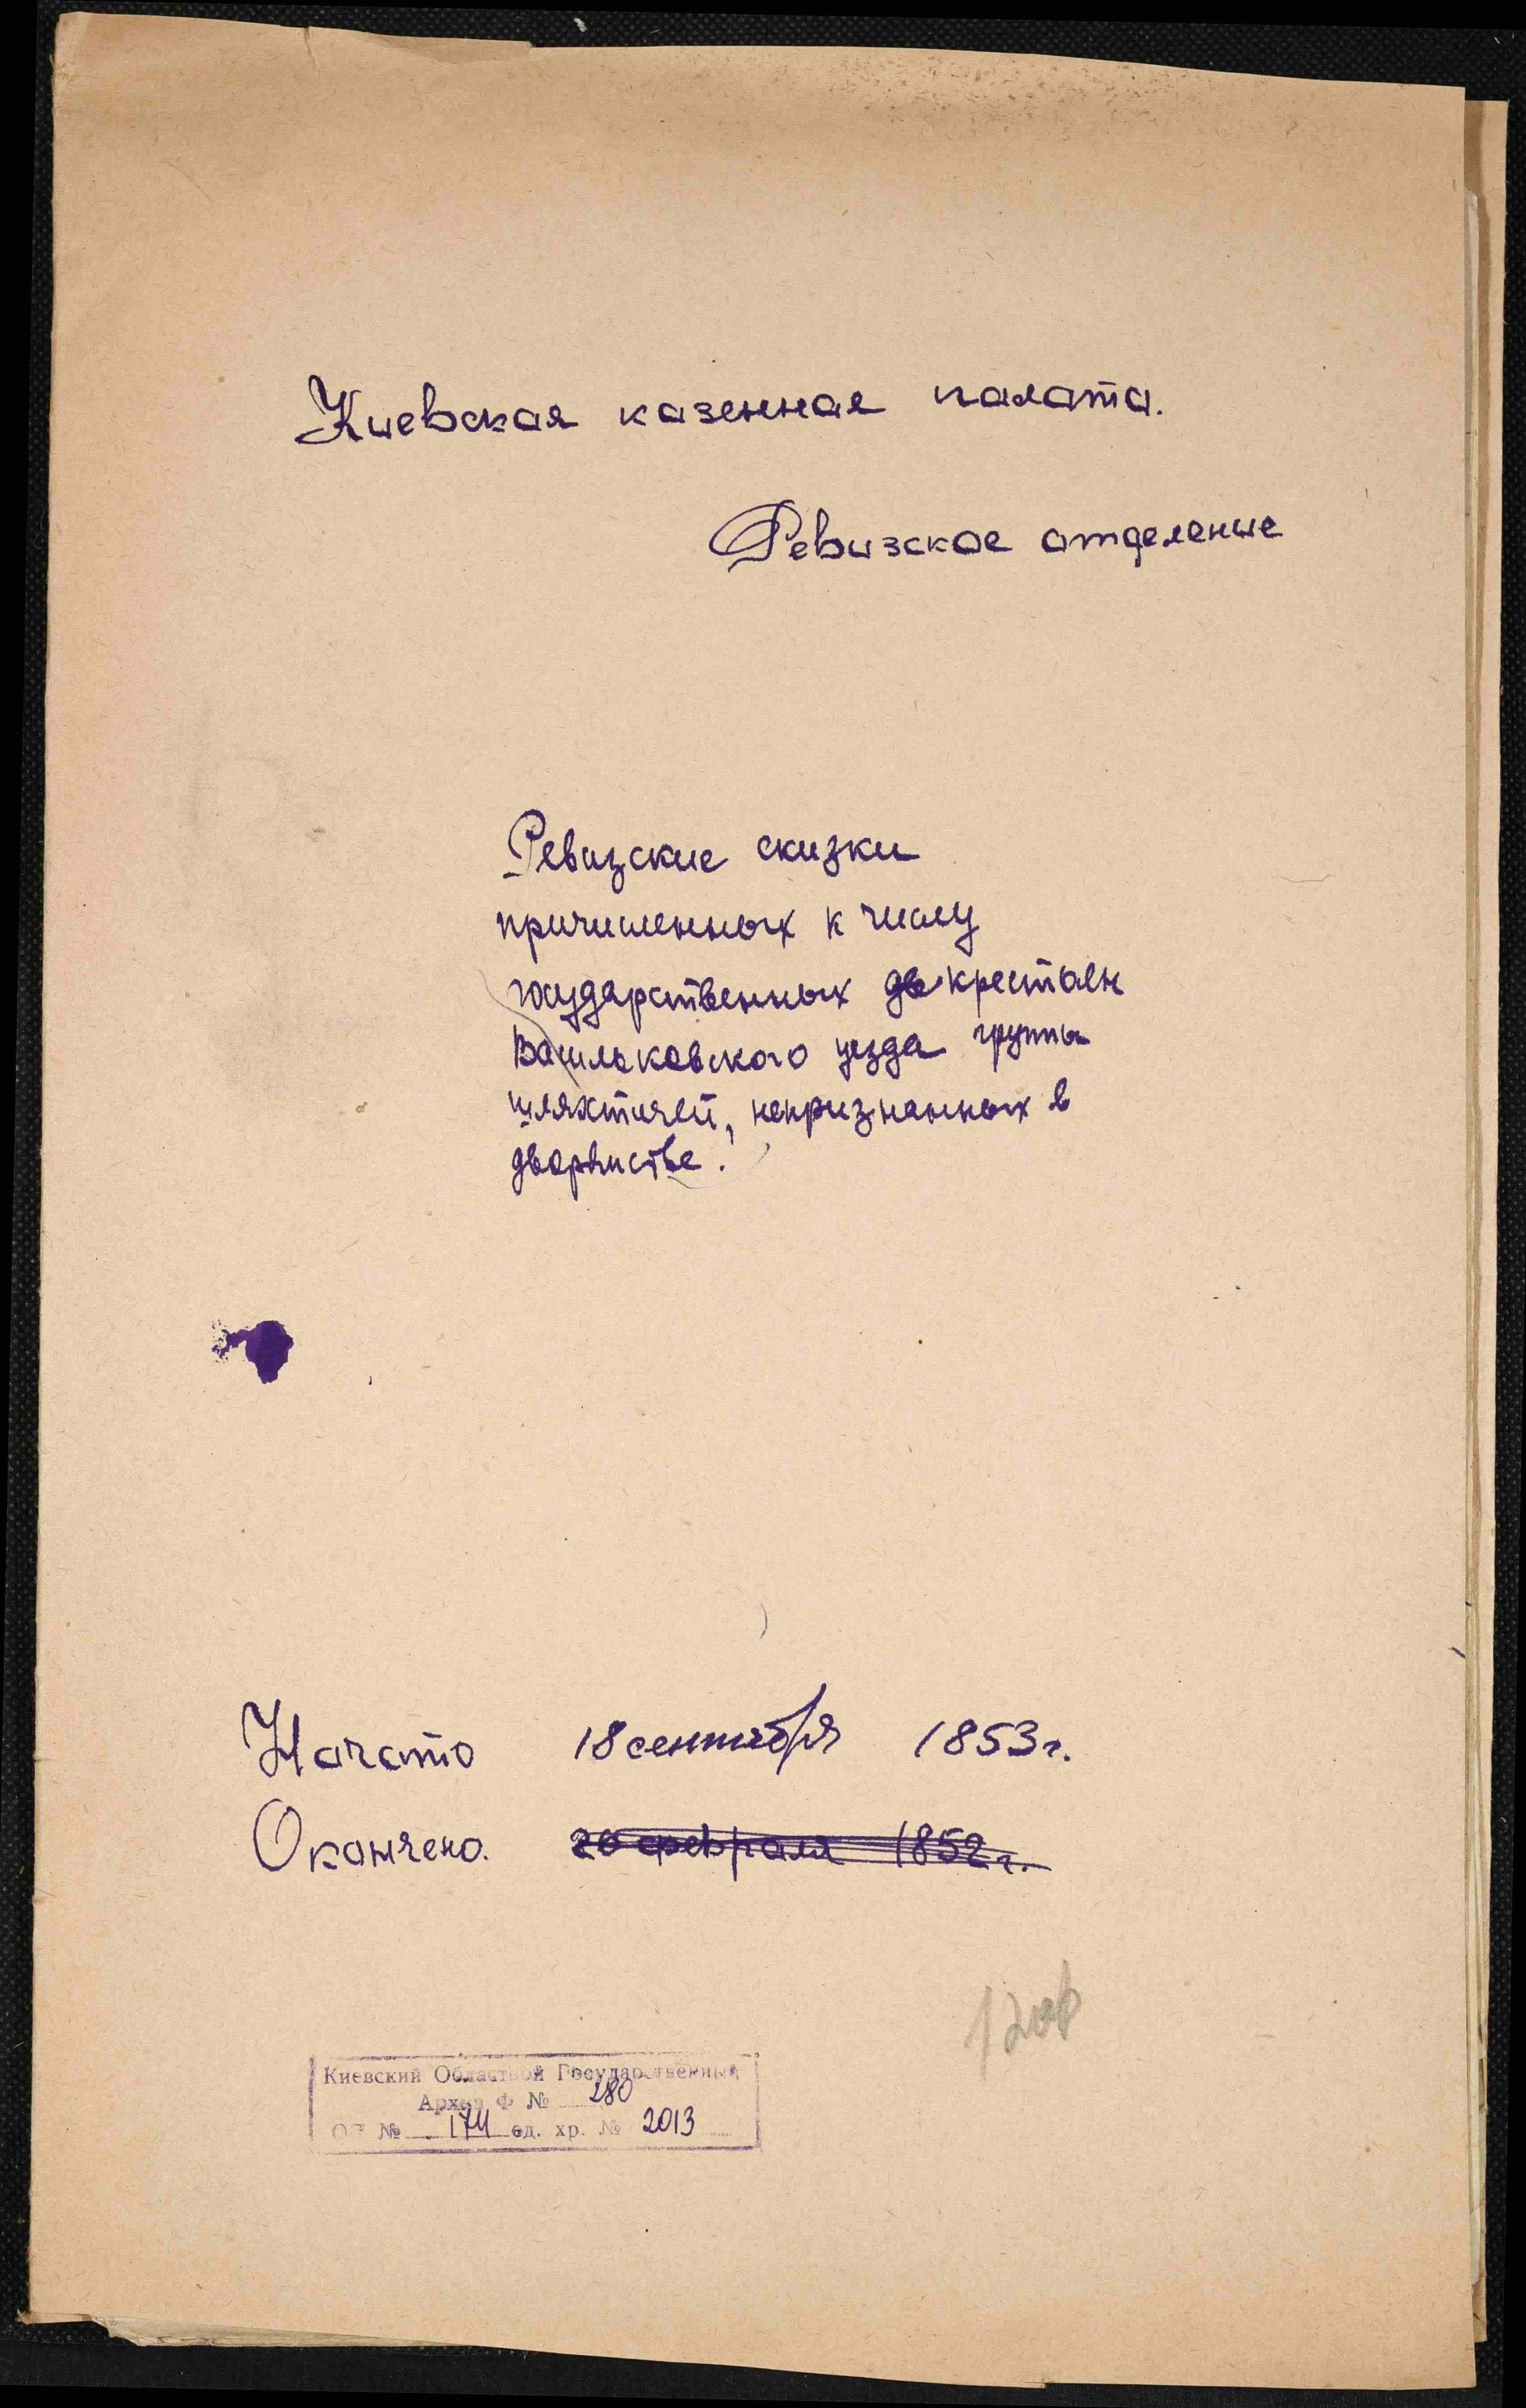 Киевская казенная палата.
Ревизское отделение
Ревизские сказки
причисленных к числу
государственных крестьян
Васильковского уезда группы
шляхтичей, непризнанных в
дворянстве.
Начато 18 сентября 1853 г.
Окончено. 26 февраля 1852 г.
Киевский Областной Государственный
Архив Ф № 280
ОП № 174 ед. хр. № 2013